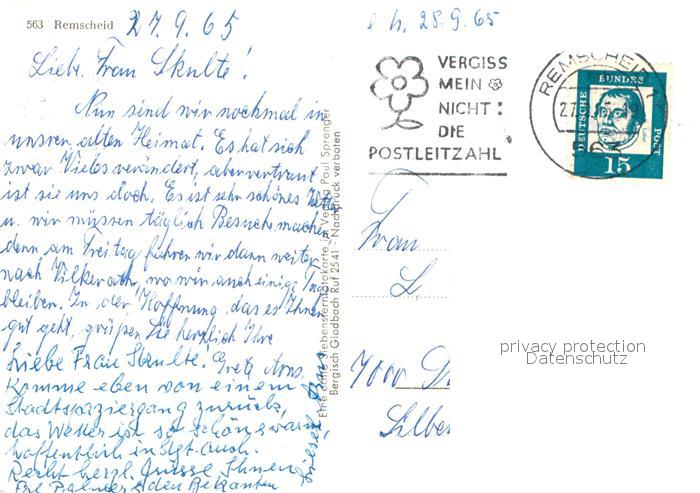 563 Remscheid 27.9.65
Liebe Frau Skulte!
Nun sind wir nochmal in
unsren alten Heimat. Es hat sich
zwar Vieles verändert, aber vertraut
ist sie uns doch. Es ist sehr schönes
u. wir müssen täglich Besuche machen
denn am Freitag fahren wir dann weiter
nach Vilkerath, wo wir auch einige Tage
bleiben. In der Hoffnung, das es Ihnen
gut geht, grüßen Sie herzlich Ihre
Liebe Frau Skulte! Gretz
Komme eben von einem
Stadtspaziergang zurück,
das Wetter ist so schön warm,
hoffentlich in Stgt. auch.
Recht herzl. Grüsse Ihnen
Frl. Palmer & den Bekannten
Eine echte Siebensternfotokarte im Verlag Paul Sprenger
Bergisch Gladbach Ruf 2541 - Nachdruck verboten
e h. 28.9.65
VERGISS
MEIN
NICHT:
DIE
POSTLEITZAHL
REMSCHEID
DEUTSCHE BUNDESPOST
15
Frau
L.
7000
Silber
privacy protection
Datenschutz